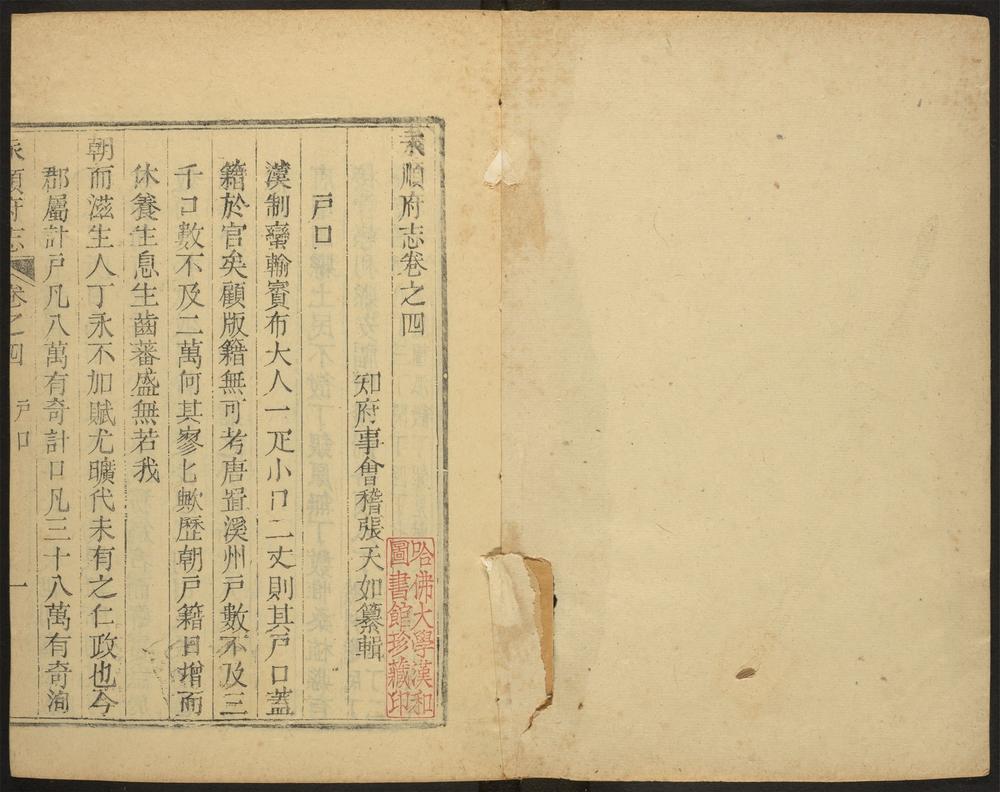 永順府志卷之四
知府事會稽張天如纂輯
戶口
漢制蠻輸賨布大人一疋小口二丈則其戶口蓋
籍於官矣顧版籍無可考唐置溪州戶數不及三
千口數不及二萬何其寥匕歟歷朝戶籍日增而
休養生息生齒蕃盛無若我
朝而滋生人丁永不加賦尤曠代未有之仁政也今
郡屬計戶凡八萬有奇計口凡三十八萬有奇洵
永順府志 卷之四 戶口 一
哈佛大學漢和
圖書館珍藏印